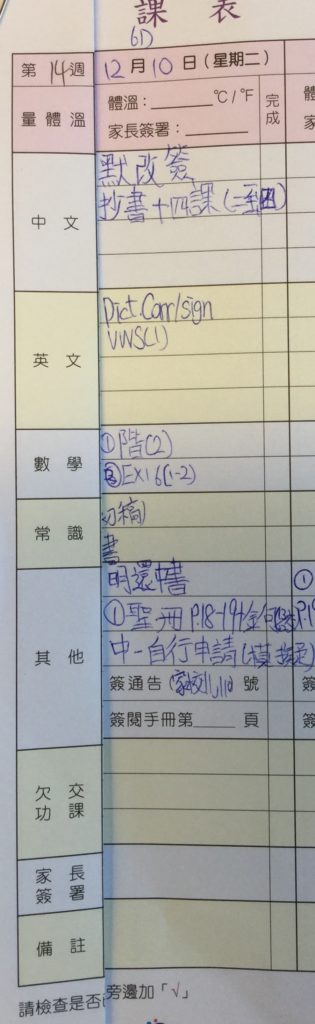 課 表
6D
第14週 12月10日(星期二)
量體溫 體溫:______°C/°F 完成
家長簽署:______
中文 默改簽
抄書十四課(三至四)
英文 Dict.Corr/sign
VWS(1)
數學 ①階(2)
②EX16(1-2)
常識 初稿)
書
其他 明還中書
①聖冊 P.18-19
中一自行申請(模擬)
簽通告 110 號
簽閱手冊第____頁
欠交功課
家長簽署
備註
請檢查是否 旁邊加「√」